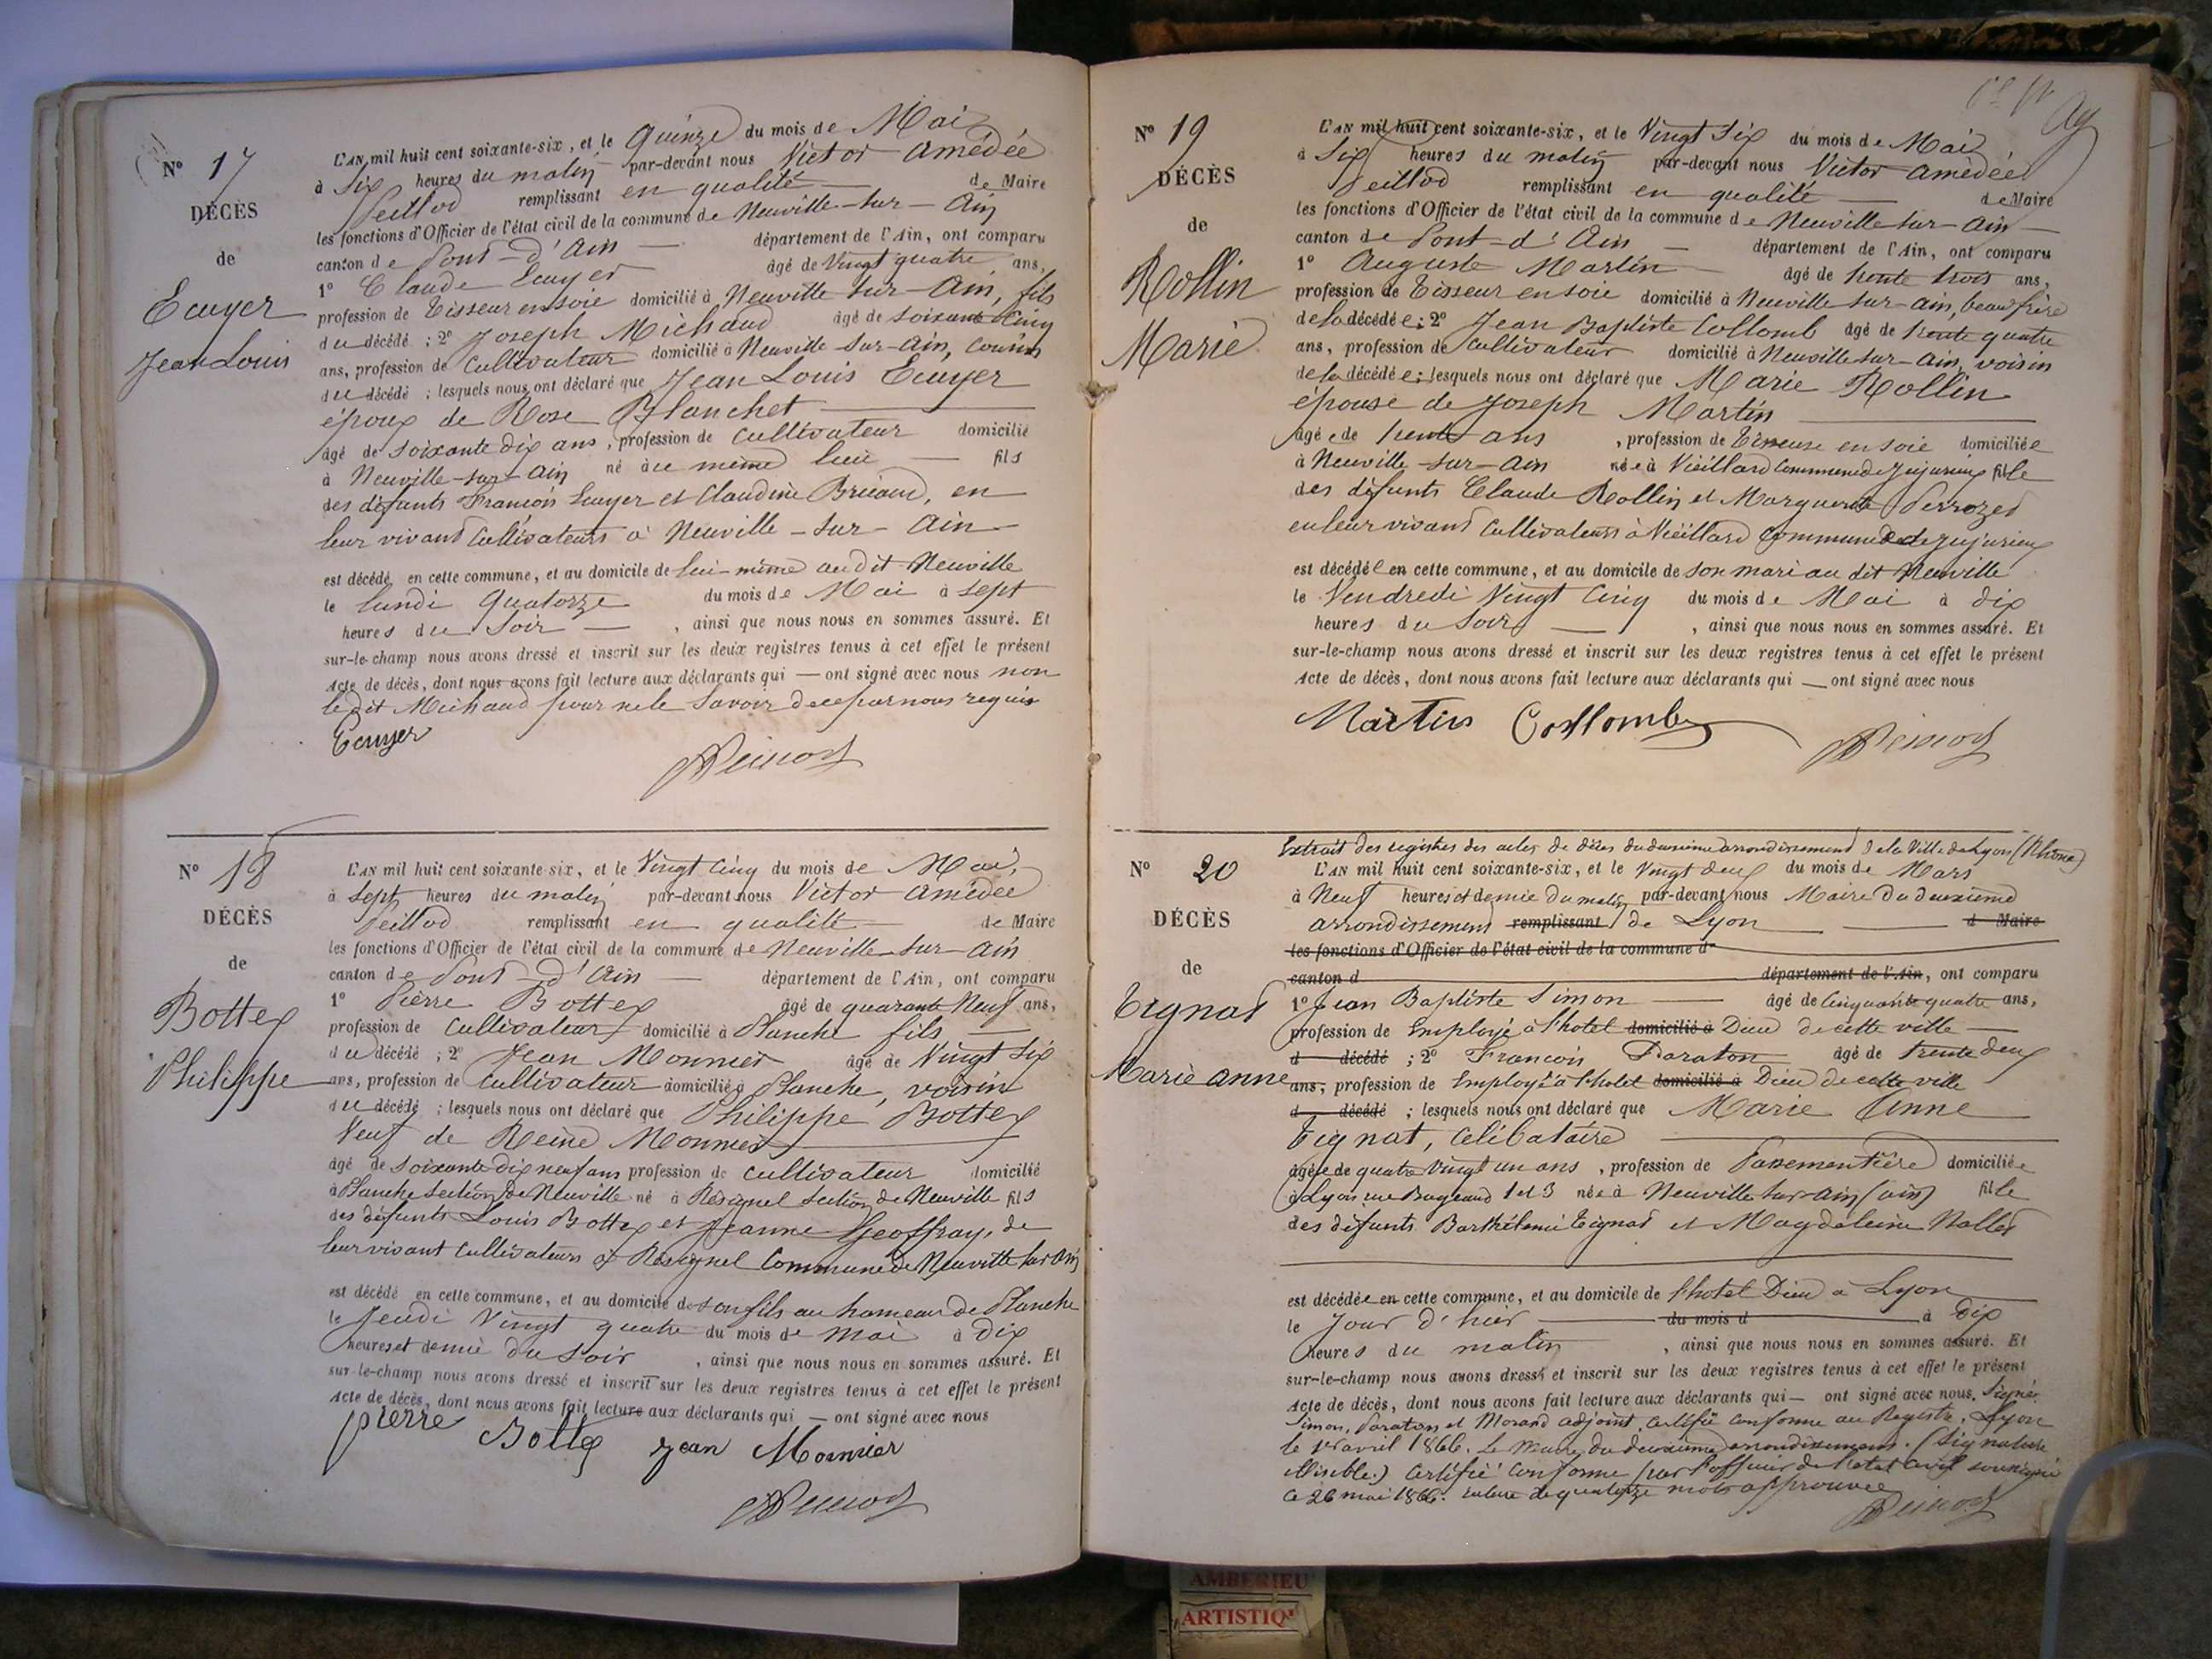 N° 17
DÉCÈS
de
Ecuyer
Jean Louis
L'AN mil huit cent soixante-six, et le Quinze du mois de Mai
à Six heures du matin par-devant nous Victor Amédée
Peillod remplissant en qualité de Maire
les fonctions d'Officier de l'état civil de la commune de Neuville-sur-Ain
canton de Pont-d'Ain département de l'Ain, ont comparu
1° Claude Ecuyer âgé de Vingt quatre ans,
profession de Tisseur en soie domicilié à Neuville sur-Ain, fils
du décédé ; 2° Joseph Michaud âgé de soixante cinq
ans, profession de Cultivateur domicilié à Neuville-sur-Ain, cousin
du décédé ; lesquels nous ont déclaré que Jean Louis Ecuyer
époux de Rose Blanchet
âgé de soixante dix ans, profession de Cultivateur domicilié
à Neuville-sur-Ain né au même lieu fils
des défunts François Ecuyer et Claudine en
leur vivant Cultivateurs à Neuville-sur-Ain
est décédé en cette commune, et au domicile de lui-même audit Neuville
le lundi Quatorze du mois de Mai à sept
heures du Soir , ainsi que nous nous en sommes assuré. Et
sur-le-champ nous avons dressé et inscrit sur les deux registres tenus à cet effet le présent
Acte de décès, dont nous avons fait lecture aux déclarants qui — ont signé avec nous non
ledit Michaud pour ne le savoir de ce par nous requis
Ecuyer
N° 18
DÉCÈS
de
Bottex
Philippe
L'AN mil huit cent soixante-six, et le Vingt cinq du mois de Mai,
à Sept heures du matin par-devant nous Victor Amédée
Peillod remplissant en qualité de Maire
les fonctions d'Officier de l'état civil de la commune de Neuville-sur-Ain
canton de Pont-d'Ain département de l'Ain, ont comparu
1° Pierre Bottex âgé de quarante Neuf ans,
profession de Cultivateur domicilié à Planche fils
du décédé ; 2° Jean Monnier âgé de Vingt Six
ans, profession de Cultivateur domicilié à Planche, voisin
du décédé ; lesquels nous ont déclaré que Philippe Bottex
Veuf de Reine Monnier
âgé de soixante dix neuf ans profession de Cultivateur domicilié
à Planche Section de Neuville né à Résignel Section de Neuville fils
des défunts Louis Bottex et Jeanne Geoffray, de
leur vivant Cultivateurs à Résignel Commune de Neuville sur Ain
est décédé en cette commune, et au domicile de son fils au hameau de Planche
le Jeudi Vingt quatre du mois de Mai à Dix
heures et demie du Soir , ainsi que nous nous en sommes assuré. Et
sur-le-champ nous avons dressé et inscrit sur les deux registres tenus à cet effet le présent
Acte de décès, dont nous avons fait lecture aux déclarants qui — ont signé avec nous
pierre Bottex jean Monnier
N° 19
DÉCÈS
de
Rollin
Marie
L'AN mil huit cent soixante-six, et le Vingt Six du mois de Mai
à Six heures du matin par-devant nous Victor Amédée
Peillod remplissant en qualité de Maire
les fonctions d'Officier de l'état civil de la commune de Neuville-sur-Ain
canton de Pont-d'Ain département de l'Ain, ont comparu
1° Auguste Martin âgé de trente trois ans,
profession de Tisseur en soie domicilié à Neuville sur-Ain, beau frère
de la décédée ; 2° Jean Baptiste Collomb âgé de trente quatre
ans, profession de Cultivateur domicilié à Neuville sur-Ain, voisin
de la décédée ; lesquels nous ont déclaré que Marie Rollin
épouse de Joseph Martin
âgée de trente ans , profession de Tisseuse en soie domiciliée
à Neuville-sur-Ain née à Vieillard Commune de Jujurieux fille
des défunts Claude Rollin et Marguerite Perrozet
en leur vivant Cultivateurs à Vieillard Commune de Jujurieux
est décédée en cette commune, et au domicile de son mari au dit Neuville
le Vendredi Vingt Cinq du mois de Mai à dix
heures du Soir , ainsi que nous nous en sommes assuré. Et
sur-le-champ nous avons dressé et inscrit sur les deux registres tenus à cet effet le présent
Acte de décès, dont nous avons fait lecture aux déclarants qui — ont signé avec nous
Martin Collomb
N° 20
DÉCÈS
de
Tignat
Marie Anne
Extrait des registres des actes de décès du deuxième arrondissement de la Ville de Lyon (Rhône)
L'AN mil huit cent soixante-six, et le Vingt deux du mois de Mars
à Neuf heures et demie du matin par-devant nous Maire du deuxième
arrondissement remplissant de Lyon d Maire
les fonctions d'Officier de l'état civil de la commune d
canton d département de l'Ain, ont comparu
1° Jean Baptiste Simon âgé de Cinquante quatre ans,
profession de Employé à l'hotel domicilié à Dieu de cette ville
d décédé ; 2° François Paraton âgé de trente deux
ans, profession de Employé à l'hotel domicilié à Dieu de cette ville
d décédé ; lesquels nous ont déclaré que Marie Anne
Tignat, Célibataire
âgée de quatre Vingt un ans , profession de Passementière domiciliée
à Lyon rue Bugeaud 1 et 3 née à Neuville sur Ain (Ain) fille
des défunts Barthélemi Tignat et Magdeleine Nallet
est décédée en cette commune, et au domicile de l'hotel Dieu à Lyon
le Jour d'hier du mois d à Dix
heures du matin , ainsi que nous nous en sommes assuré. Et
sur-le-champ nous avons dressé et inscrit sur les deux registres tenus à cet effet le présent
Acte de décès, dont nous avons fait lecture aux déclarants qui — ont signé avec nous. Signé:
Simon, Paraton et Morand adjoint. Certifié conforme au Registre, Lyon
le avril 1866. Le Maire du deuxième arrondissement. (Signature
illisible.) Certifié conforme par l'officier de l'état civil soussigné
ce 26 mai 1866. rature de quatorze mots approuvée
AMBERIEU
ARTISTIQ